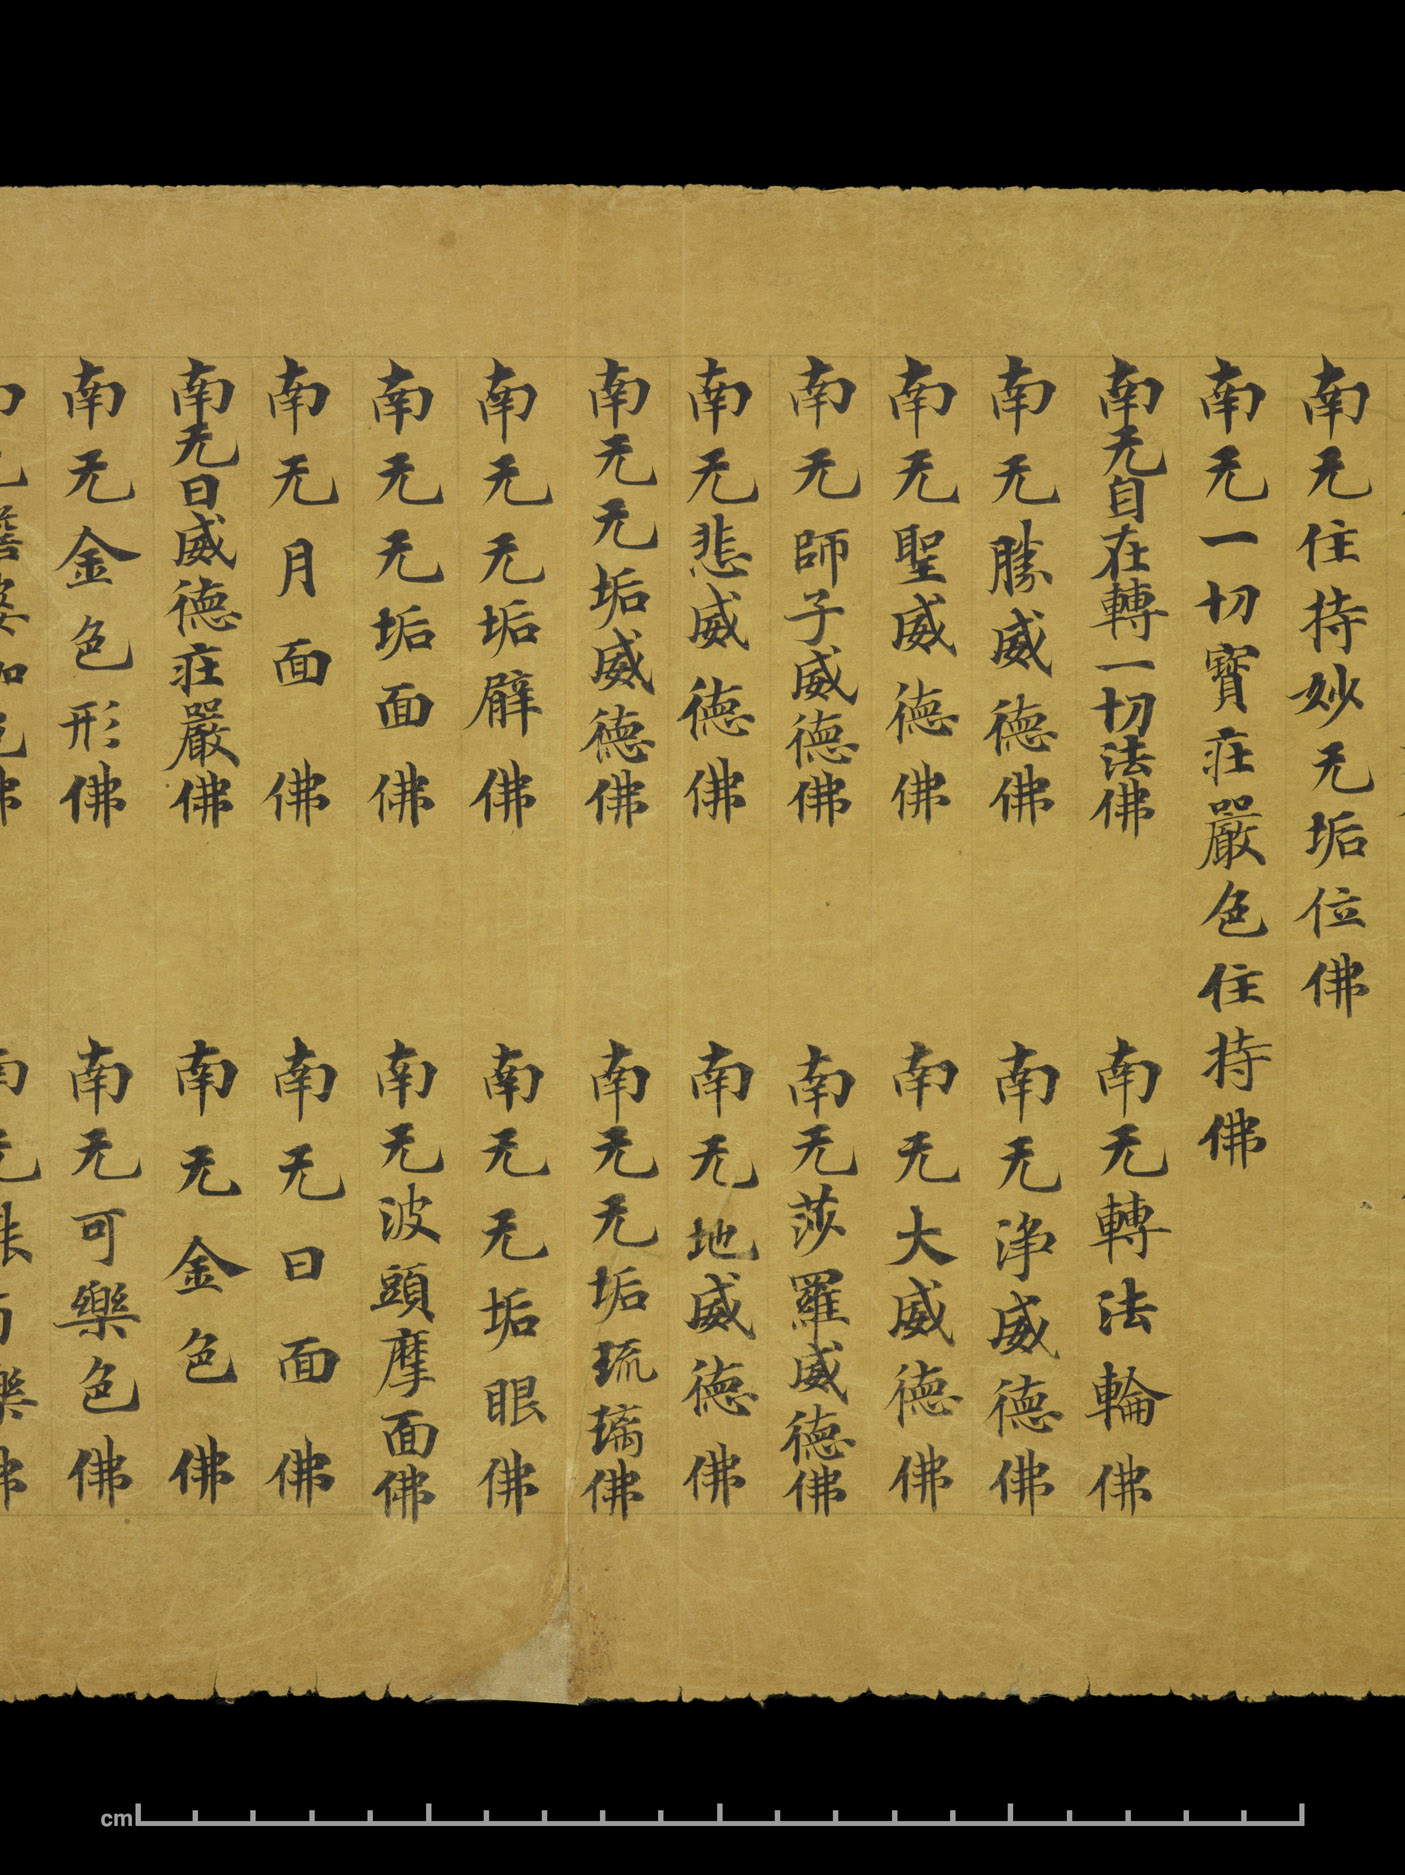 南无住持妙无垢位佛
南无一切寶莊嚴色住持佛
南无自在轉一切法佛　南无轉法輪佛
南无勝威德佛　南无淨威德佛
南无聖威德佛　南无大威德佛
南无師子威德佛　南无莎羅威德佛
南无悲威德佛　南无地威德佛
南无无垢威德佛　南无无垢琉璃佛
南无无垢臂佛　南无无垢眼佛
南无无垢面佛　南无波頭摩面佛
南无月面佛　南无日面佛
南无日威德莊嚴佛　南无金色佛
南无金色形佛　南无可樂色佛
cm